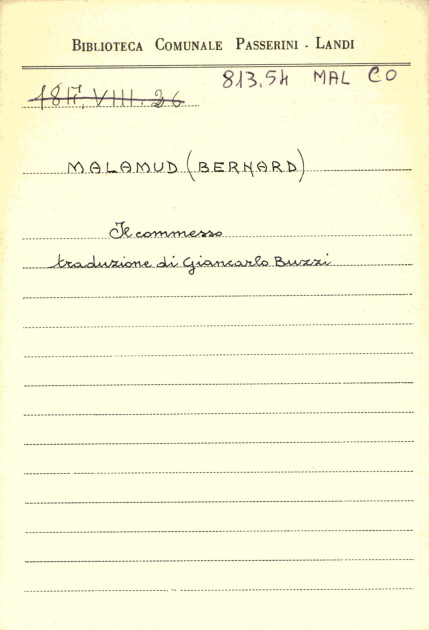 BIBLIOTECA COMUNALE PASSERINI - LANDI
813.54 MAL CO
VIII. 26
MALAMUD (BERNARD)
Il commesso
traduzione di Giancarlo Buzzi